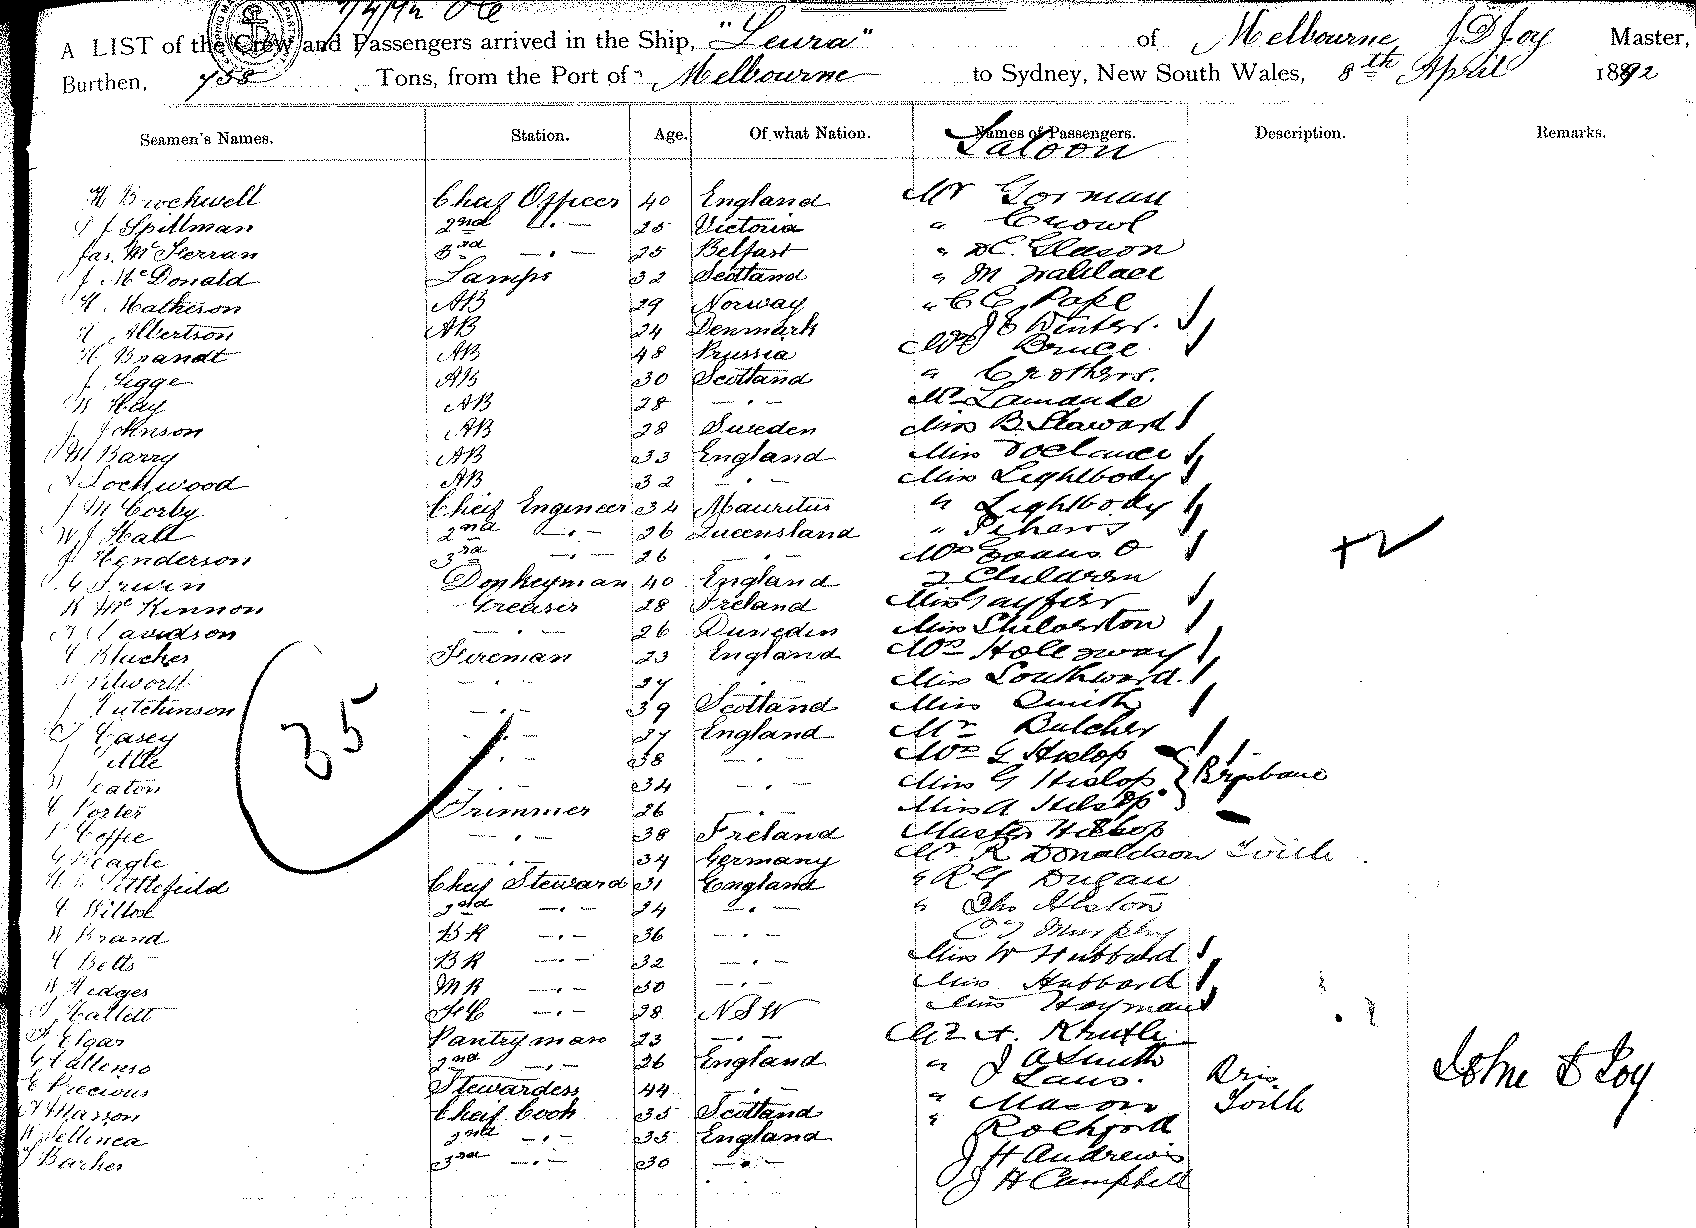 7/4/92
A LIST of the Crew and Passengers arrived in the Ship, "Leura" of Melbourne J D Joy Master,
Burthen, 758 Tons, from the Port of Melbourne to Sydney, New South Wales, 8th April 1892
Seamen's Names. Station. Age. Of what Nation. Names of Passengers. Description. Remarks.
Saloon
H Brockwell Chief Officer 40 England Mr Gorman
J Spillman 2nd " 25 Victoria " Crowl
Jas. McFerran 3rd " 25 Belfast " Gleason
J McDonald Lamps 32 Scotland " M Wallace
Matheson AB 29 Norway " C C Pope
Albertson AB 24 Denmark J E Winter.
H Brandt AB 48 Prussia Bruce
J Ligge AB 30 Scotland " Crothers.
W Hay AB 28 " Mr Lamande
J Johnson AB 28 Sweden Miss B. Staward
M Barry AB 33 England Miss
A Lockwood AB 32 " Miss Lightbody
J M Corby Chief Engineer 34 Mauritus " Lightbody
W J Hall 2nd " 26 Queensland "
J Henderson 3rd " 26 " Mrs Evans &
G Irwin Donkeyman 40 England 2 Children
R McKinnon Greaser 28 Ireland Miss
Davidson " 26 Dunedin Miss Shilverton
Blucher Fireman 23 England Mrs Holloway
" 27 Miss Southward.
J Hutchinson " 39 Scotland Miss Smith
Casey " 37 England Mr Butcher
" 38 " Mrs G Hislop
" 34 " Miss G Hislop Brisbane
Porter Trimmer 26 " Miss A Hislop
Coffie " 38 Ireland Master Hislop
Beagle " 34 Germany Mr. R Donaldson Tville
Littlefeild Chief Steward 31 England " R G Dugan
2nd " 24 " " Jno Alston
W Brand BR " 36 " Murphy
Betts BR " 32 " Miss W Hubbard
Hedges MR " 30 " Miss Hubbard
Hallett FC " 28 NSW Miss Hayman
Elgar Pantryman 23 "
2nd " 26 England " J A Smith
Precious Stewardess 44 " Laws. Bris
Masson Chief Cook 35 Scotland " Mason Tville
2nd " 35 England " Rochford
Barker 3rd " 30 " J H Andrews
J H Campbell
35
John D Joy